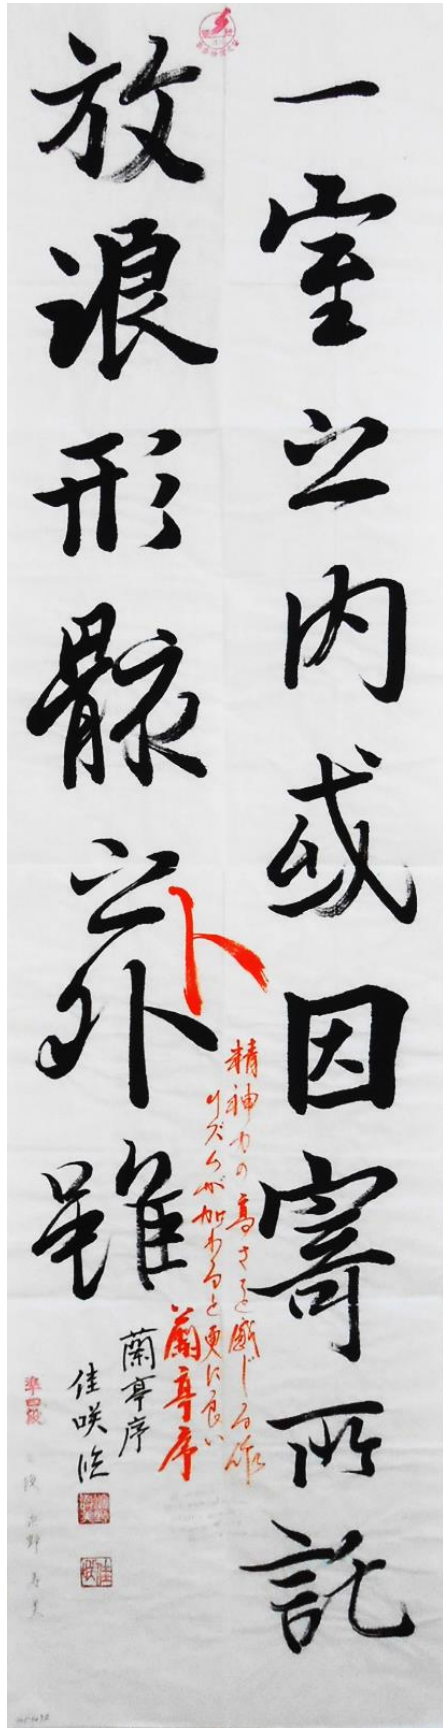 一室之内或因寄所託
放浪形骸之外雖
卜
精神力の高さを感じる作
リズムが加わると更に良い
蘭亭序
蘭亭序
佳咲臨
準四段